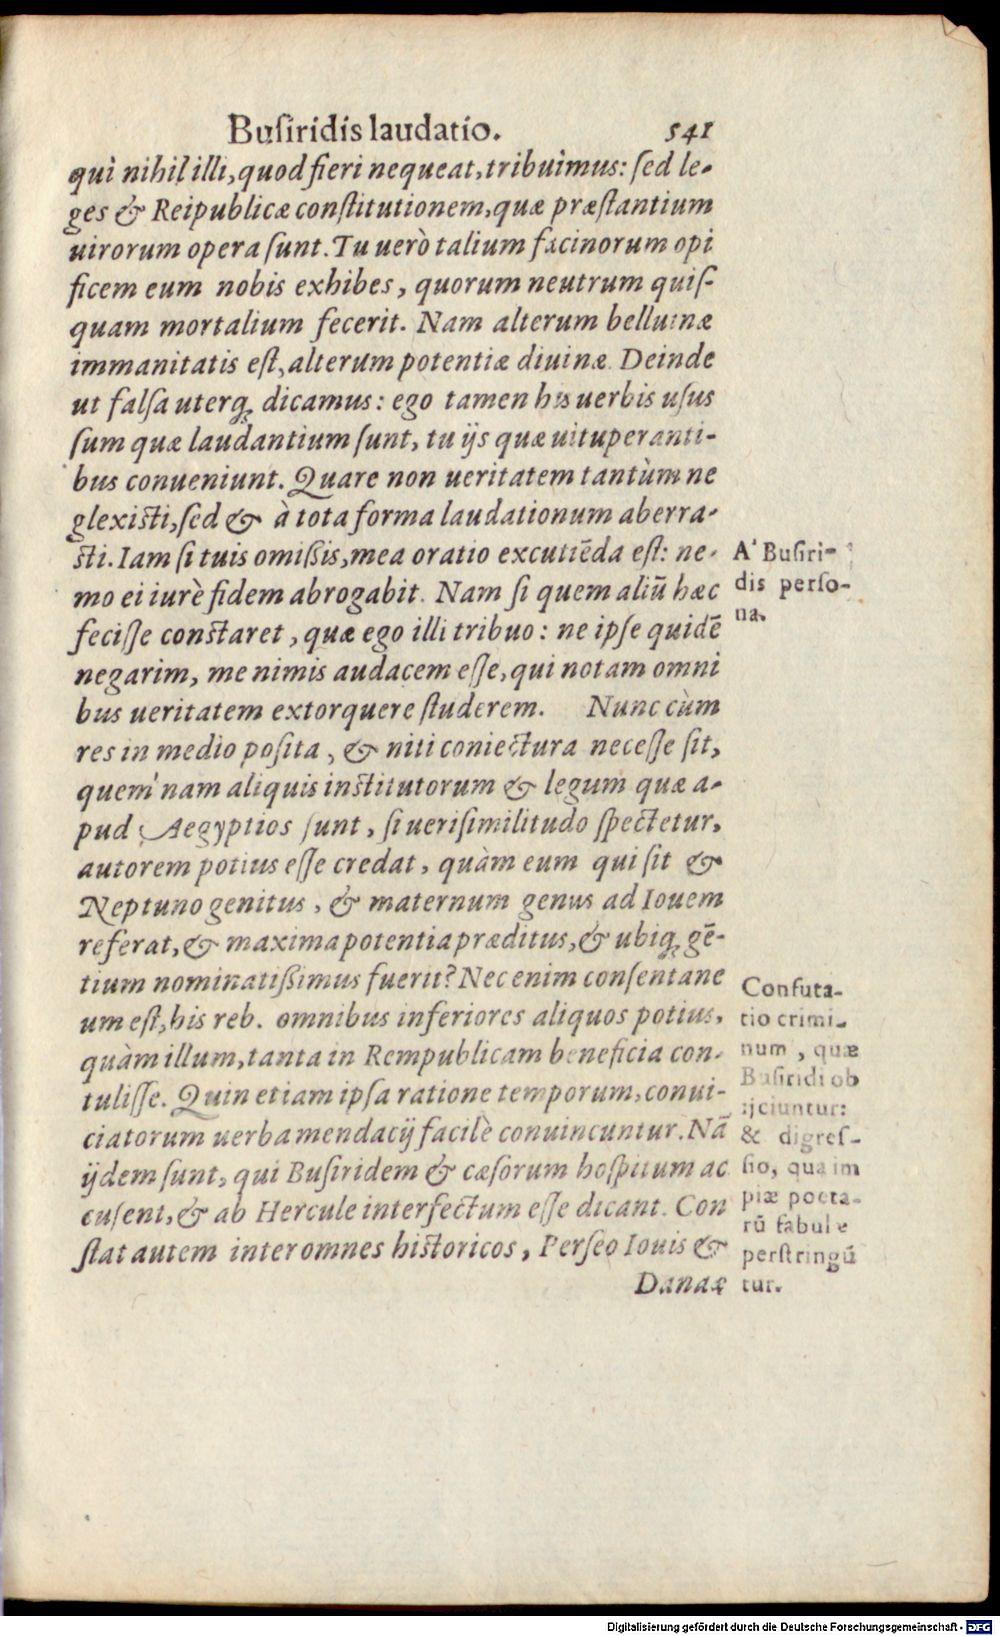 Buſiridis laudatio. 541
qui nihil illi, quod fieri nequeat, tribuimus: ſed le-
ges & Reipublicæ conſtitutionem, quæ præſtantium
uirorum opera ſunt. Tu uerò talium facinorum opi
ficem eum nobis exhibes, quorum neutrum quiſ-
quam mortalium fecerit. Nam alterum belluinæ
immanitatis eſt, alterum potentiæ diuinæ. Deinde
ut falſa uterq; dicamus: ego tamen his uerbis uſus
ſum quæ laudantium ſunt, tu ijs quæ uituperanti-
bus conueniunt. Quare non ueritatem tantùm ne
glexiſti, ſed & à tota forma laudationum aberra-
ſti. Iam ſi tuis omißis, mea oratio excutiēda eſt: ne-
mo ei iurè fidem abrogabit. Nam ſi quem aliū hæc
feciſſe conſtaret, quæ ego illi tribuo: ne ipſe quidē
negarim, me nimis audacem eſſe, qui notam omni
bus ueritatem extorquere ſtuderem. Nunc cùm
res in medio poſita, & niti coniectura neceſſe ſit,
quem nam aliquis inſtitutorum & legum quæ a-
pud Aegyptios ſunt, ſi ueriſimilitudo ſpectetur,
autorem potius eſſe credat, quàm eum qui ſit &
Neptuno genitus, & maternum genus ad Iouem
referat, & maxima potentia præditus, & ubiq; gē-
tium nominatißimus fuerit? Nec enim conſentane
um eſt, his reb. omnibus inferiores aliquos potius,
quàm illum, tanta in Rempublicam beneficia con-
tuliſſe. Quin etiam ipſa ratione temporum, conui-
ciatorum uerba mendacij facilè conuincuntur. Nā
ijdem ſunt, qui Buſiridem & cæſorum hoſpitum ac
cuſent, & ab Hercule interfectum eſſe dicant. Con
ſtat autem inter omnes hiſtoricos, Perſeo Iouis &
Danaæ
A' Buſiri-
dis perſo-
na.
Confuta-
tio crimi-
num, quæ
Buſiridi ob
ijciuntur:
& digreſ-
ſio, qua im
piæ poeta-
rū fabulæ
perſtringū
tur.
Digitalisierung gefördert durch die Deutsche Forschungsgemeinschaft - DFG